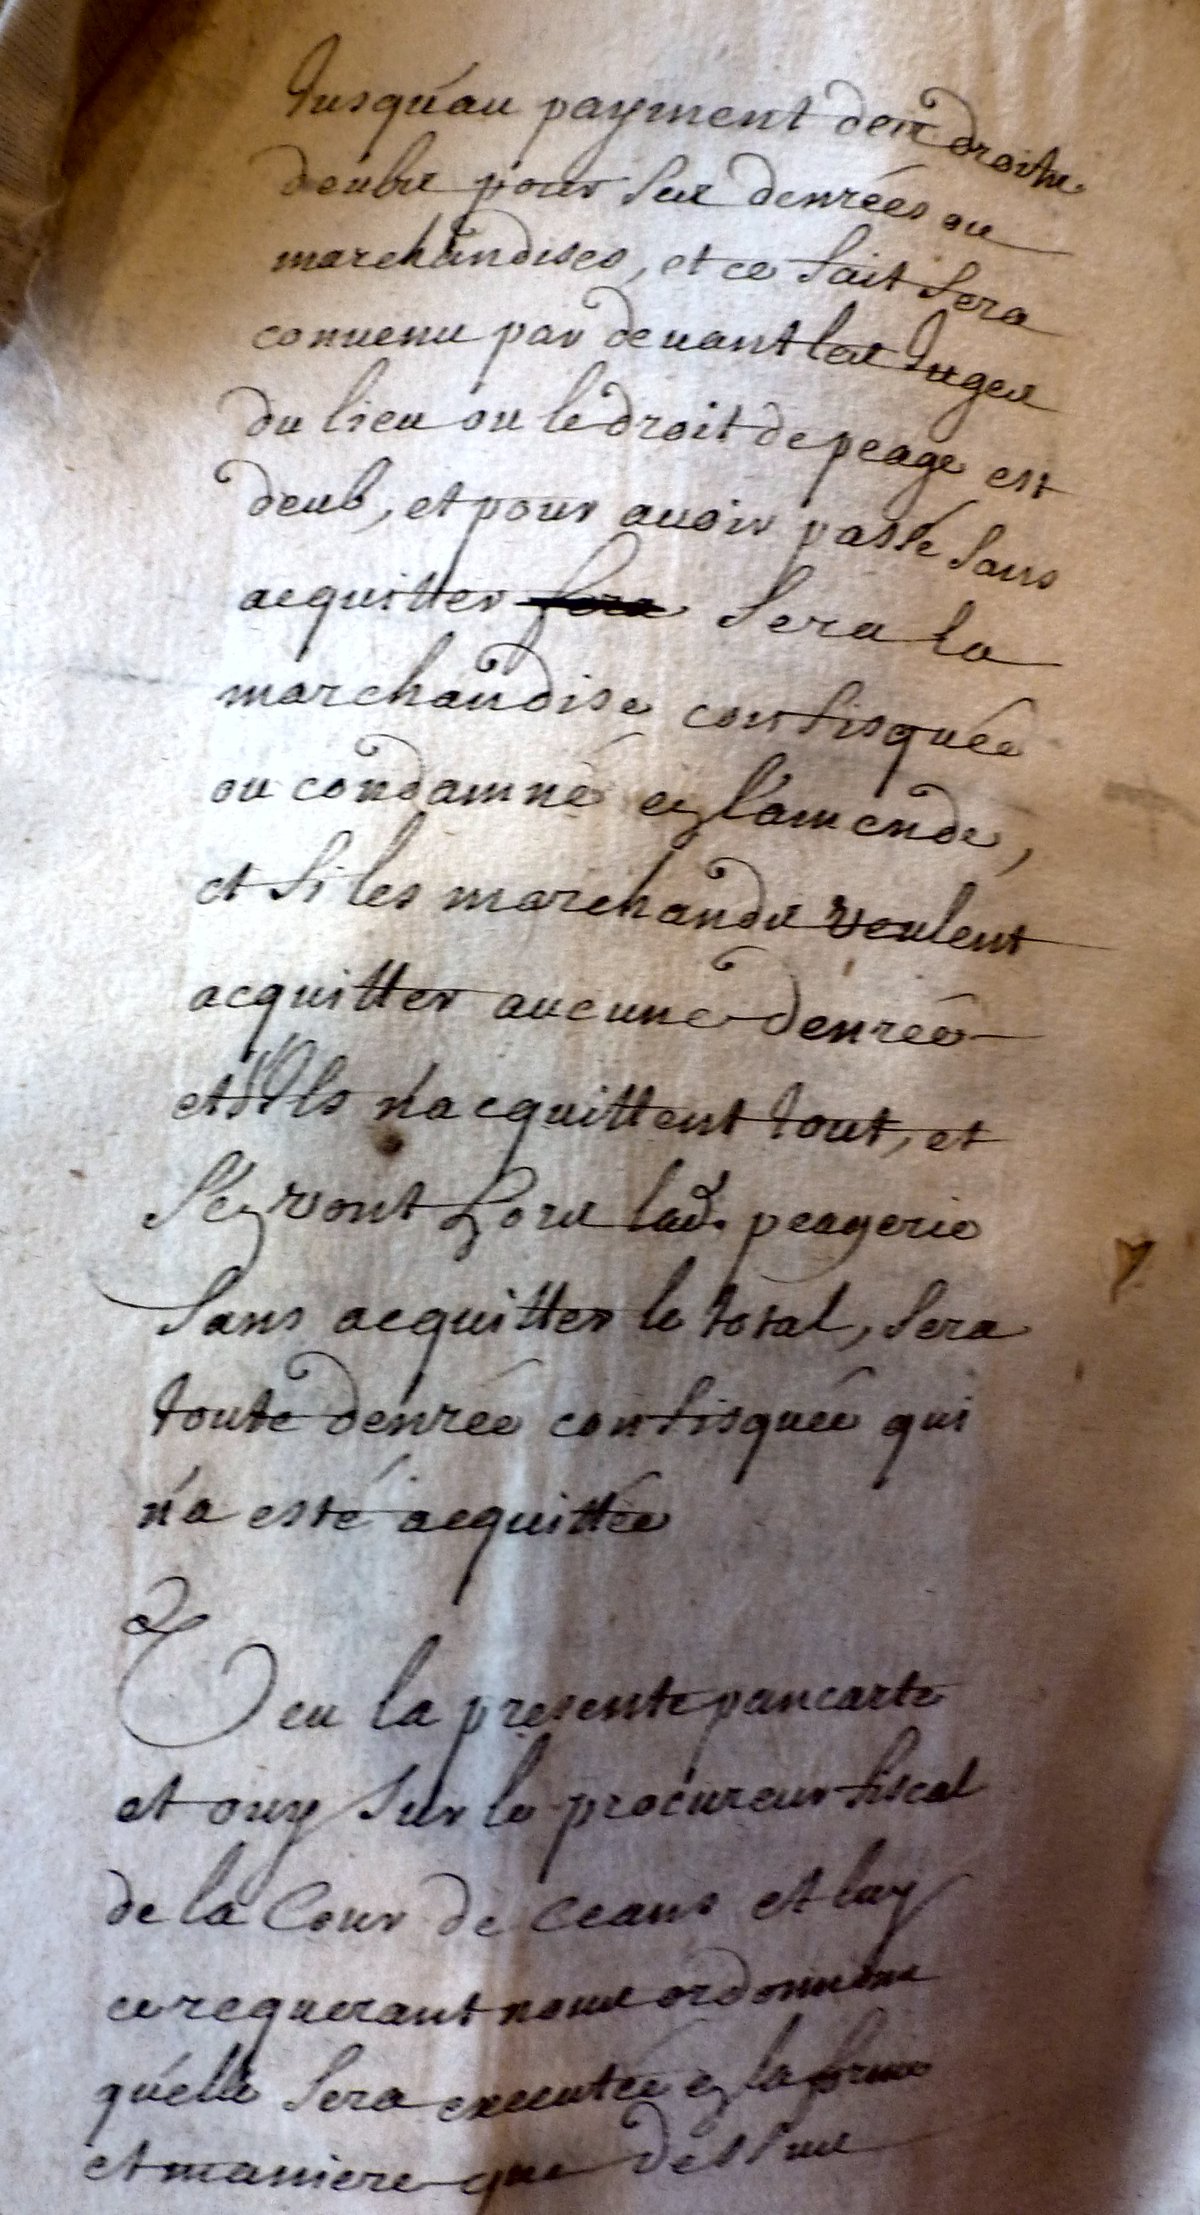 Jusqu'au payment des droits
deubs pour ses denrées ou
marchandises, et ce fait sera
convenu par devant les Juges
du lieu ou le droit de peage est
deub, et pour avoir passé sans
acquitter sera sera la
marchandise confisquée
ou condamné en l'amende,
et si les marchands veulent
acquitter aucune denrée
et s'Ils n'acquittent tout, et
s'en vont hors lad. peagerie
sans acquitter le total, sera
toute denrée confisquée qui
n'a esté acquittée
Veu la presente pancarte
et ouy sur le procureur fiscal
de la Cour de ceans et luy
ce requerant nous ordonnons
qu'elle sera executée en la forme
et maniere que dessus